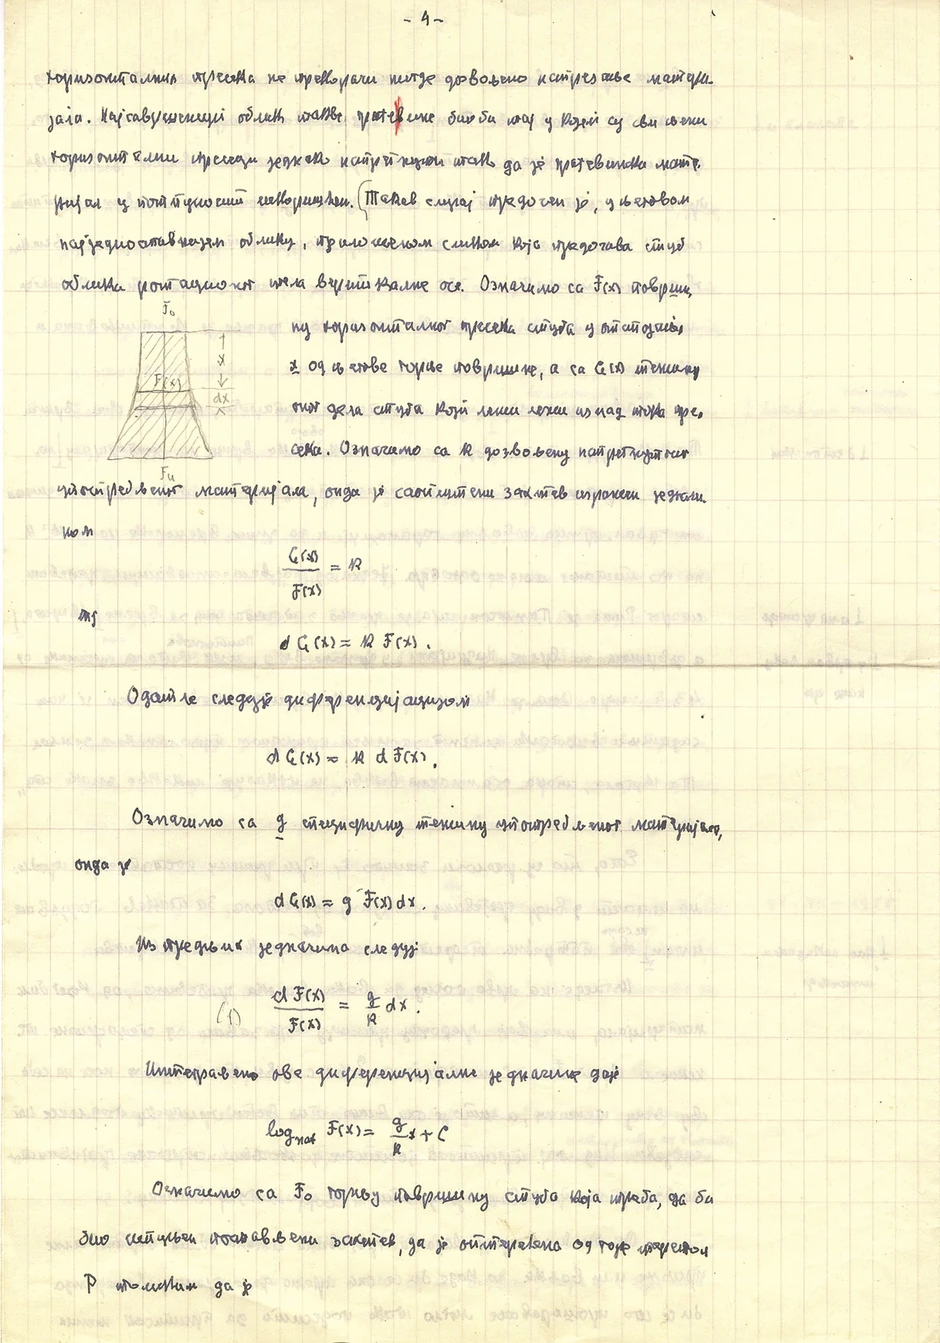 - 4 -
хоризонталних пресека не прекорачи нигде дозвољено напрезање матери-
јала. Најсавршенији облик такве грађевине био би онај у којем су сви њени
хоризонтални пресеци једнако напрегнути тако да је грађевински мате-
ријал у потпуности искоришћен. (Такав случај предочен је, у његовом
најједноставнијем облику, приложеном сликом која предочава стуб
облика ротационог тела вертикалне осе. Означимо са F(x) површи-
F₀
ну хоризонталног пресека стуба у отстојању
x од његове горње површине, а са G(x) тежину
оног дела стуба који лежи изнад тога пре-
сека. Означимо са k дозвољену напрегнутост
x
F(x)
dx
Fu
употребљеног материјала, онда је саопштени захтев изражен једначи-
ном
G(x)/F(x) = k
тј
d G(x) = k F(x).
Одатле следује диференцијацијом
d G(x) = k d F(x).
Означимо са g специфичну тежину употребљеног материјала,
онда је
d G(x) = g F(x) dx.
Из предњих једначина следује
(1) d F(x)/F(x) = g/k dx.
Интегралење ове диференцијалне једначине даје
log nat F(x) = g/k x + C
Означимо са F₀ горњу површину стуба која треба, да би
био испуњен постављени захтев, да је оптерећена од горе теретом
P толиким да је